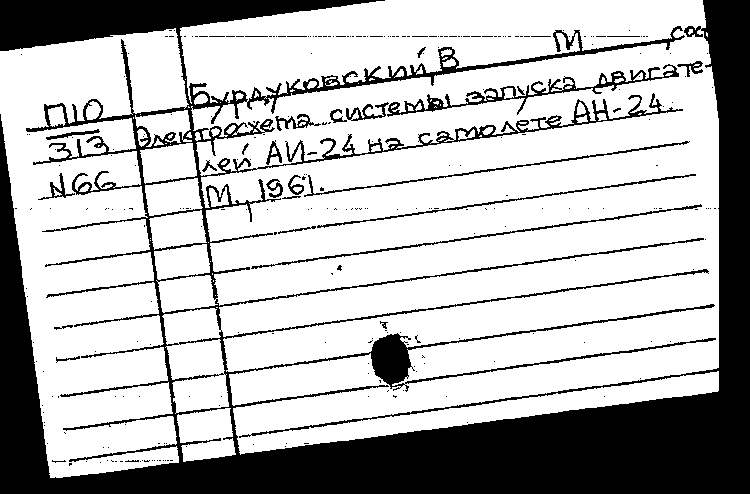 Бурдуковский, В М , сост
П10
313
N66
Электросхема системы запуска двигате-
лей АИ-24 на самолете АН-24.
М., 1961.